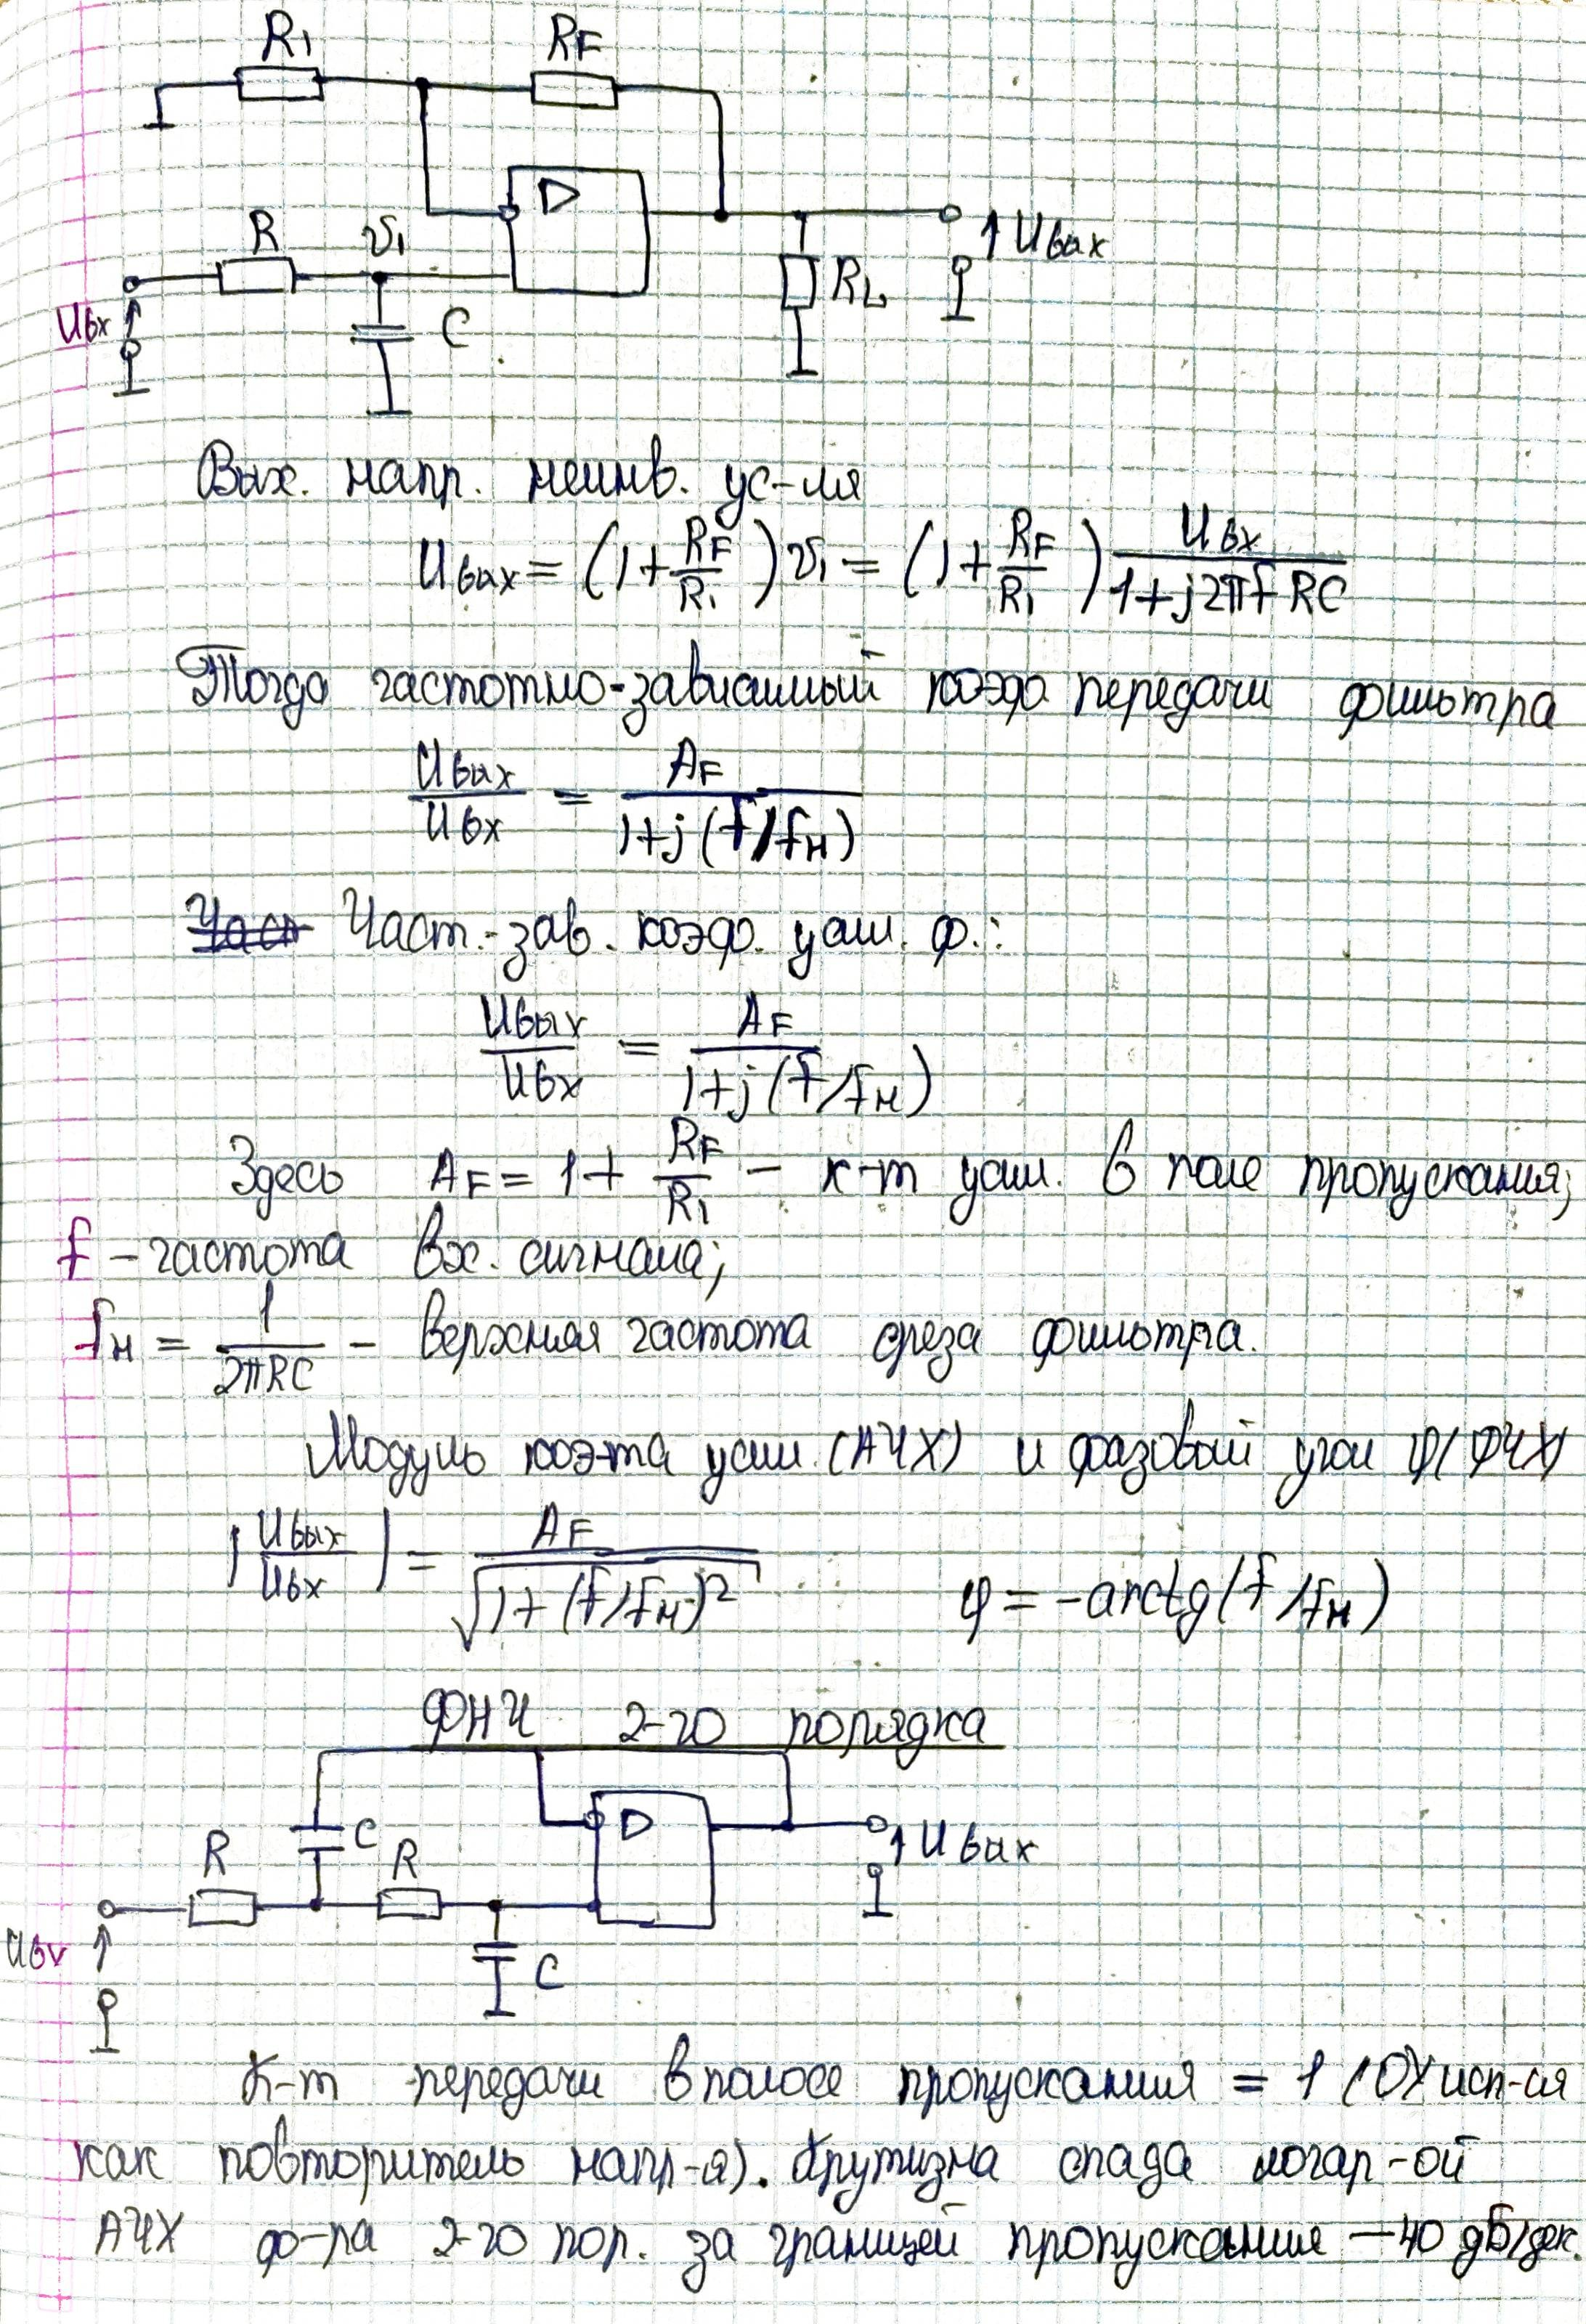 R₁ R_F
D
R v₁
Uвх C R_L ↑Uвых
Вых. напр. неинв. ус-ля
Uвых = (1+R_F/R₁)v₁ = (1+R_F/R₁) Uвх/(1+j2πfRC)
Тогда частотно-зависимый коэф передачи фильтра
Uвых/Uвх = A_F/(1+j(f/fн))
Част.-зав. коэф. усил. ф.:
Uвых/Uвх = A_F/(1+j(f/fн))
Здесь A_F = 1+ R_F/R₁ – к-т усил. в поле пропускания;
f – частота вх. сигнала;
fн = 1/(2πRC) – верхняя частота среза фильтра.
Модуль коэ-та усил. (АЧХ) и фазовый угол φ(ФЧХ)
|Uвых/Uвх| = A_F/√(1+(f/fн)²) φ = -arctg(f/fн)
ФНЧ 2-го порядка
D
R C R ↑Uвых
Uвх C
К-т передачи в полосе пропускания = 1 (ОУ исп-ся
как повторитель напр-я). Крутизна спада логар-ой
АЧХ ф-ра 2-го пор. за границей пропускания –40 дБ/дек.